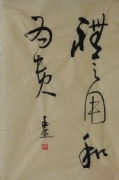 禮之用和
為貴